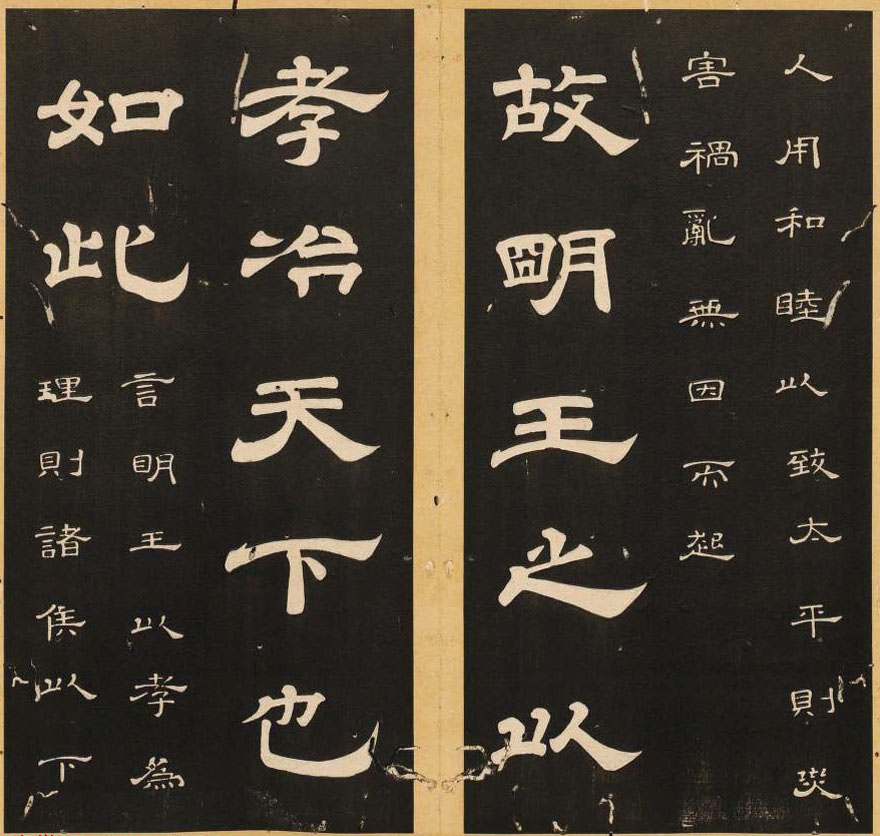 人用和睦以致太平則災
害禍亂無因而起
故明王之以
孝治天下也
如此
言明王以孝為
理則諸侯以下